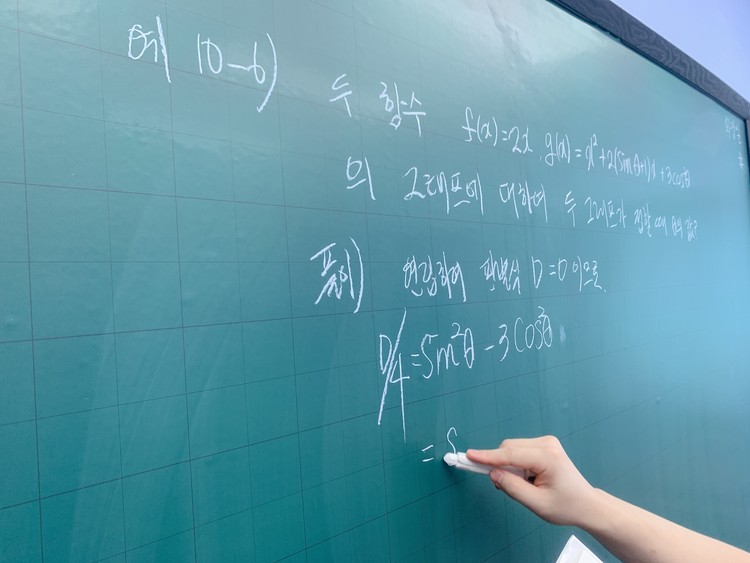 예 10-6) 두 함수 f(x)=2x, g(x)=x²+2(sinθ+1)x+3cos²θ
의 그래프에 대하여 두 그래프가 접할 때 θ의 값?
풀이) 연립하여 판별식 D=0 이므로.
D/4=sin²θ-3cos²θ
= s